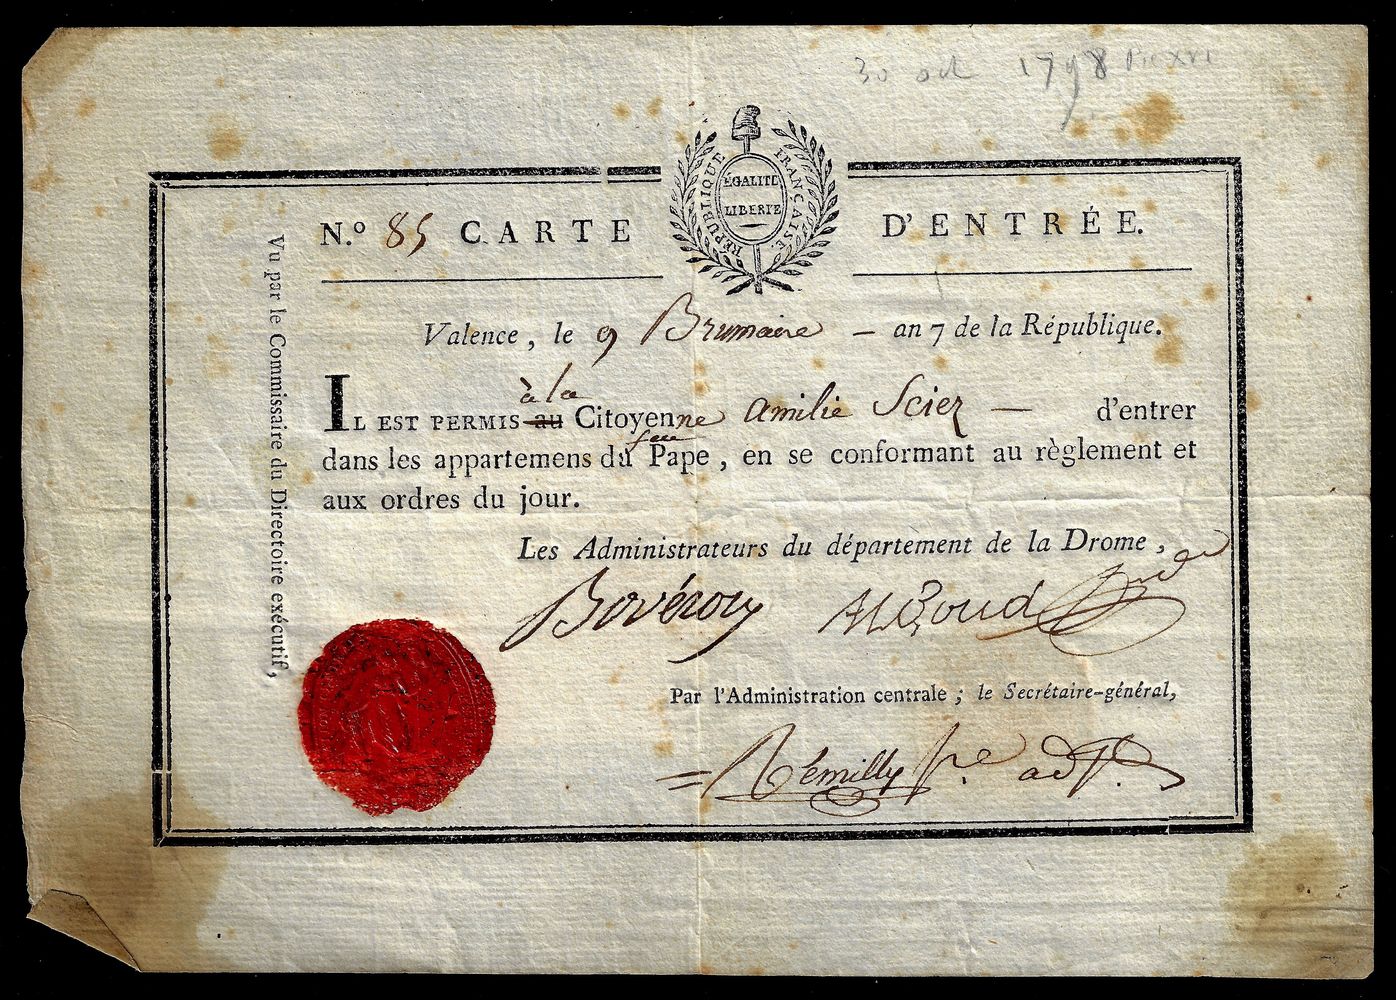 30 oct 1798 Pie XVI
ÉGALITÉ
LIBERTÉ
RÉPUBLIQUE FRANÇAISE.
N.º 85 CARTE D'ENTRÉE.
Valence, le 9 Brumaire — an 7 de la République.
à la
IL EST PERMIS au Citoyenne Amilie Sciez — d'entrer
feu
dans les appartemens du Pape, en se conformant au règlement et
aux ordres du jour.
Les Administrateurs du département de la Drome,
Bovéron Algoud
Par l'Administration centrale ; le Secrétaire-général,
= Rémilly
Vu par le Commissaire du Directoire exécutif,